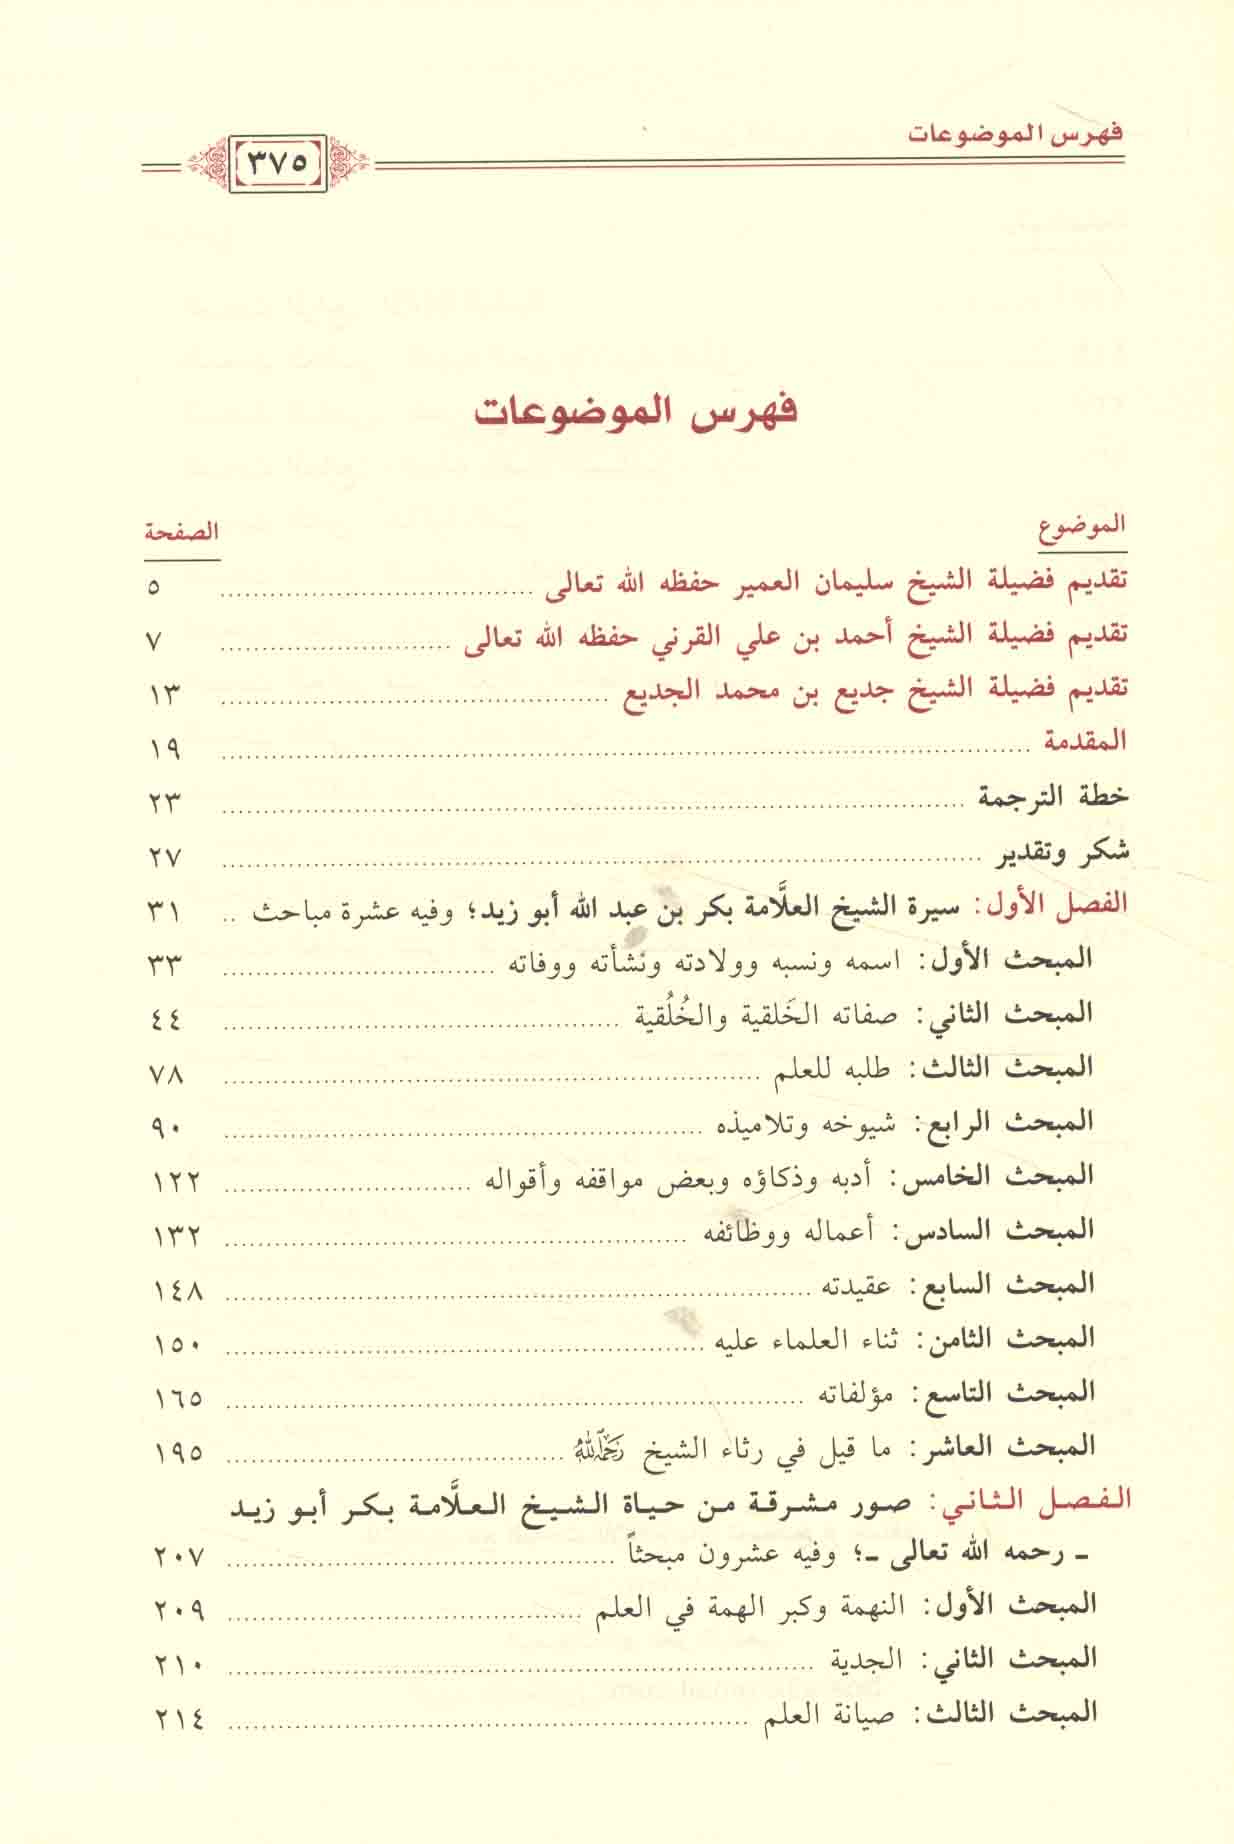 فهرس الموضوعات
٣٧٥
فهرس الموضوعات
الموضوع الصفحة
تقديم فضيلة الشيخ سليمان العمير حفظه الله تعالى ................ ٥
تقديم فضيلة الشيخ أحمد بن علي القرني حفظه الله تعالى ................ ٧
تقديم فضيلة الشيخ جديع بن محمد الجديع ................ ١٣
المقدمة ................ ١٩
خطة الترجمة ................ ٢٣
شكر وتقدير ................ ٢٧
الفصل الأول: سيرة الشيخ العلَّامة بكر بن عبد الله أبو زيد؛ وفيه عشرة مباحث .. ٣١
المبحث الأول: اسمه ونسبه وولادته ونشأته ووفاته ................ ٣٣
المبحث الثاني: صفاته الخَلقية والخُلُقية ................ ٤٤
المبحث الثالث: طلبه للعلم ................ ٧٨
المبحث الرابع: شيوخه وتلاميذه ................ ٩٠
المبحث الخامس: أدبه وذكاؤه وبعض مواقفه وأقواله ................ ١٢٢
المبحث السادس: أعماله ووظائفه ................ ١٣٢
المبحث السابع: عقيدته ................ ١٤٨
المبحث الثامن: ثناء العلماء عليه ................ ١٥٠
المبحث التاسع: مؤلفاته ................ ١٦٥
المبحث العاشر: ما قيل في رثاء الشيخ رحمه الله ................ ١٩٥
الفصل الثاني: صور مشرقة من حياة الشيخ العلَّامة بكر أبو زيد
ـ رحمه الله تعالى ـ؛ وفيه عشرون مبحثاً ................ ٢٠٧
المبحث الأول: النهمة وكبر الهمة في العلم ................ ٢٠٩
المبحث الثاني: الجدية ................ ٢١٠
المبحث الثالث: صيانة العلم ................ ٢١٤